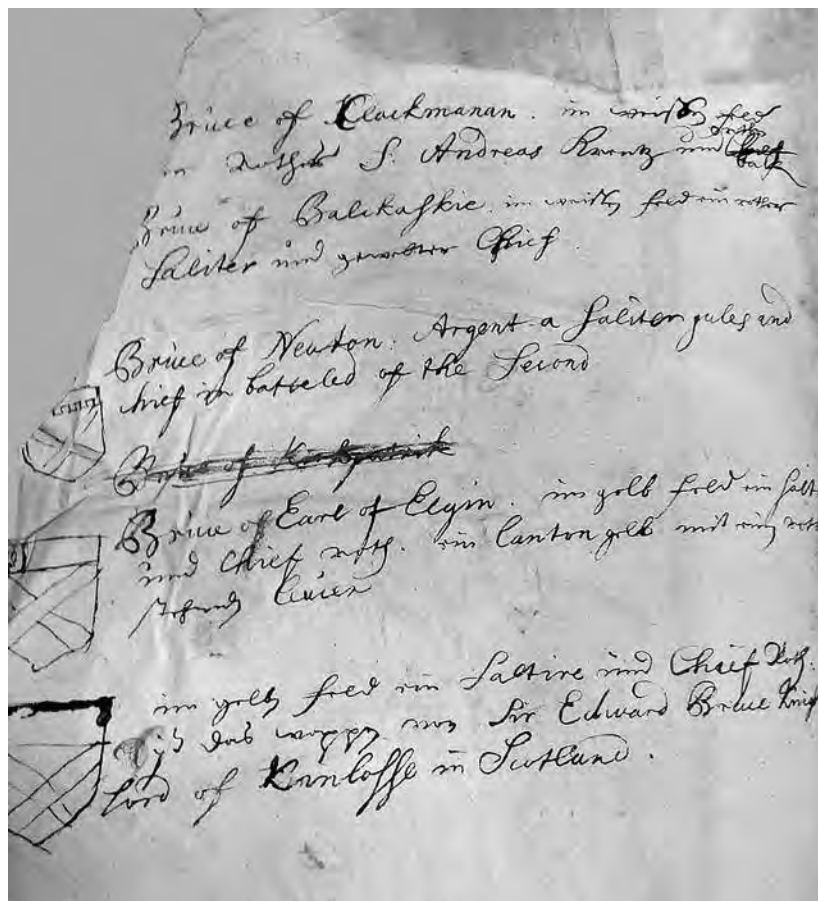 Bruce of Clackmanan. im weißen feld
ein Rothes S. Andreas Kreutz und
rother
balk
Bruce of Balckaskie. im weißen feld ein rother
Saliter und gewelbter Chief.
Bruce of Newton. Argent a Saliter gules and
chief in batteled of the Second
Bruce of Kirkpatrick
Bruce of Earl of Elgin. im gelb feld ein Salt
und Chief roth. ein Canton gelb mit ein roth
stehend
im gelben feld ein Saltire und Chief Roth.
ist das wappen von Sir Edward Bruce Knig
Lord of Kinlosse in Scotland.